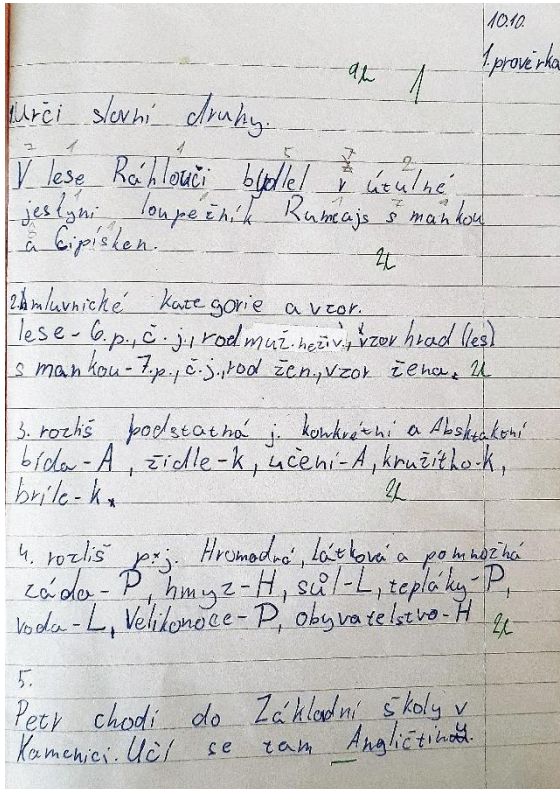 10.10.
1. prověrka
1
1. Urči slovní druhy.
2 1 1 5 7 2
V lese Ráhlouči bydlel v útulné
1 7
jeskyni loupežník Rumcajs s mankou
8
a Cipísken.
2. mluvnické kategorie a vzor.
lese - 6.p., č.j., rod muž. neživ., vzor hrad (les)
s mankou - 7.p., č.j., rod žen., vzor žena.
3. rozliš podstatná j. konkrétní a Abstraktní
bída - A, židle - k, učení - A, kružítko - k,
brýle - k.
4. rozliš p.j. Hromadná, látková a pomnožná
záda - P, hmyz - H, sůl - L, tepláky - P,
voda - L, Velikonoce - P, obyvatelstvo - H
5.
Petr chodí do Základní školy v
Kamenici. Učí se tam Angličtinu.